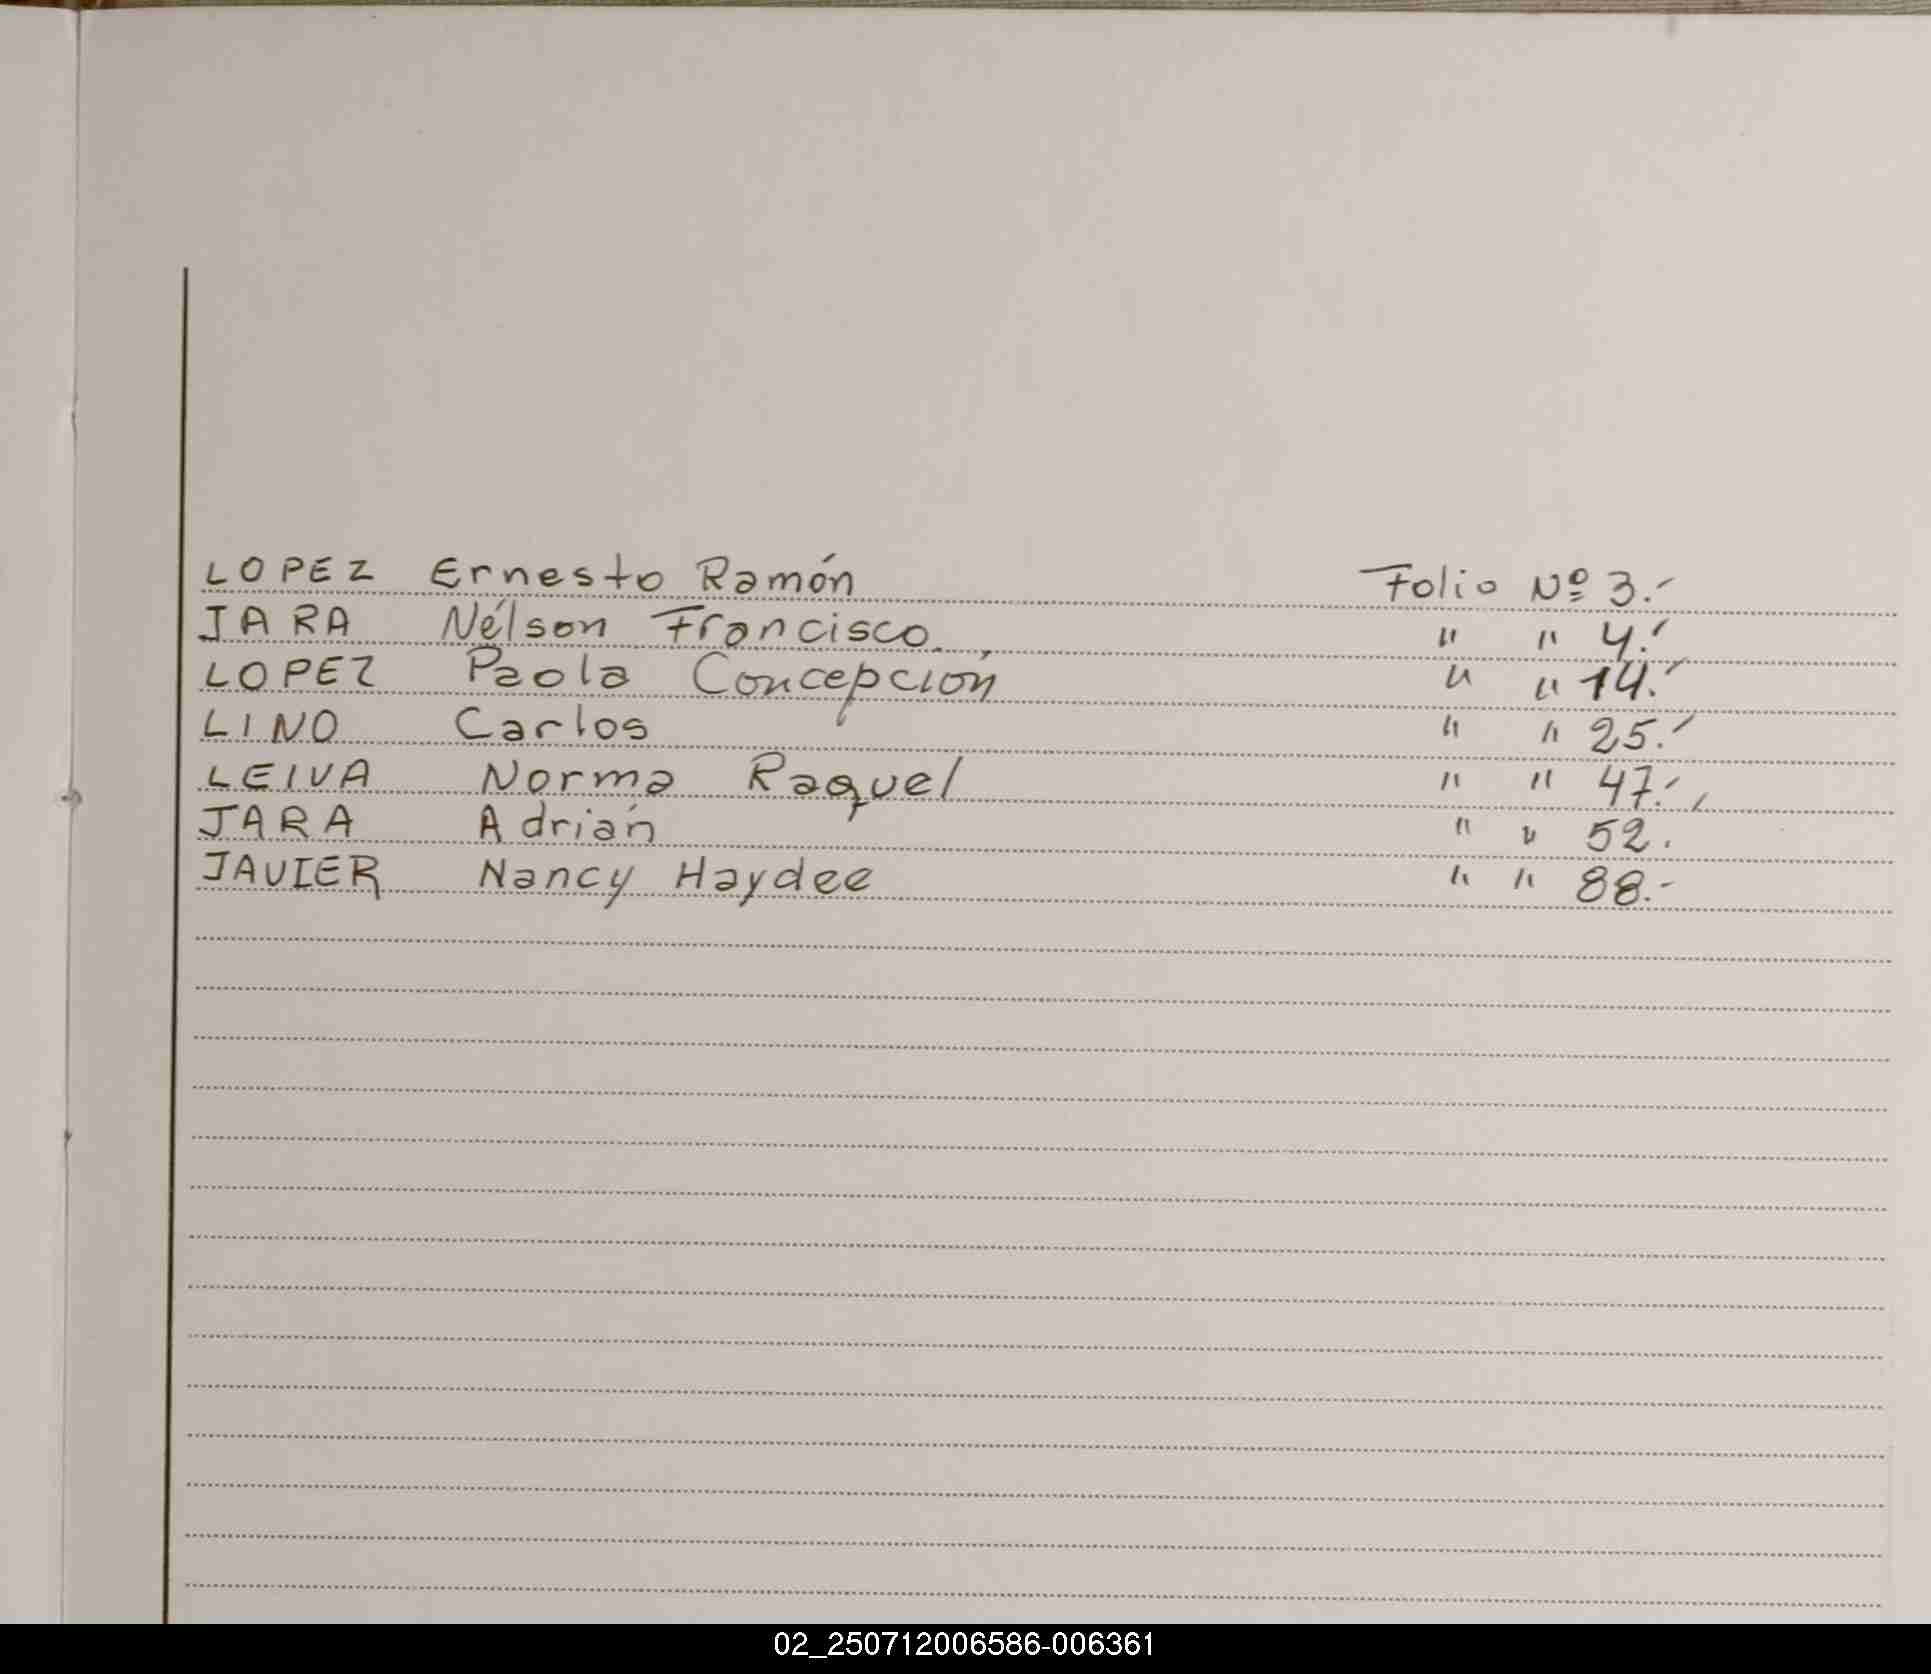 LOPEZ Ernesto Ramón Folio Nº 3.-
JARA Nélson Francisco. " " 4.-
LOPEZ Paola Concepción " " 14.-
LINO Carlos " " 25.-
LEIVA Norma Raquel " " 47.-
JARA Adrián " " 52.
JAVIER Nancy Haydee " " 88.-
02_250712006586-006361